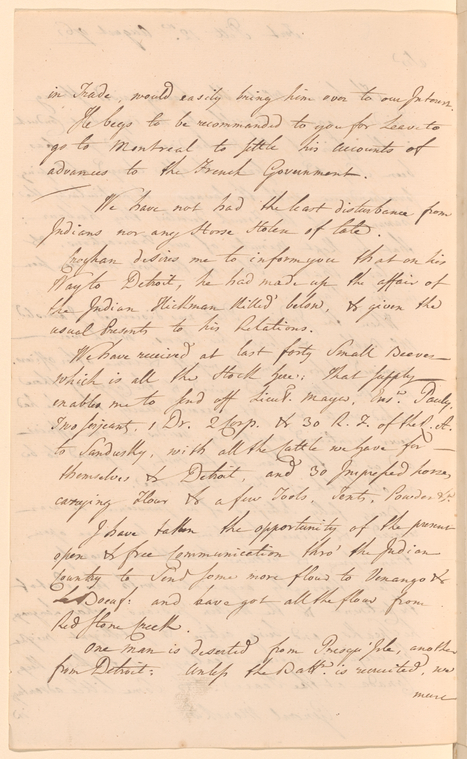 in Trade, would easily bring him over to our Interest.
He begs to be recommended to you for Leave to
go to Montreal to settle his Accounts of
advances to the French Government.
We have not had the least disturbance from
Indians nor any Horse Stolen of late.
Croghan desires me to inform you that on his
Way to Detroit, he had made up the affair of
the Indian Hickman Killed below, & given the
usual Presents to his Relations.
We have received at last forty Small Beeves
which is all the Stock here: that supply
enables me to send off Lieut. Mayer, Ens. Pauly,
Two Serjeant, 1 Dr. 2 Corp. & 30 R. F. of the R. A.
to Sandusky, with all the Cattle we have for
themselves & Detroit, and 30 Impressed horses
carrying Flour & a few Tools, Tents, Powder &c.
I have taken the opportunity of the present
open & free Communication thro' the Indian
Country to Send some more flour to Venango &
Le Boeuf: and have got all the flour from
Red Stone Creek.
One man is deserted from Presqu'Isle, another
from Detroit: Unless the Batt. is recruited, we
more